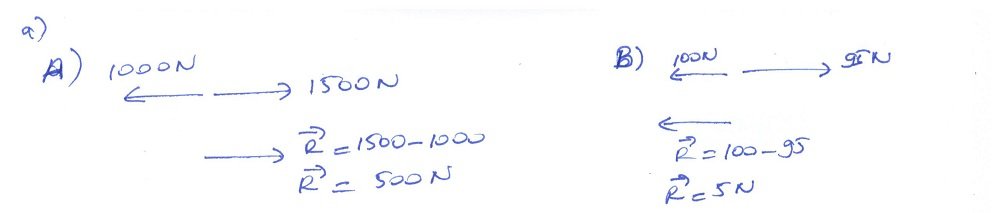 a)
A) 1000N 1500N
R = 1500-1000
R = 500N
B) 100N 95N
R = 100-95
R = 5N